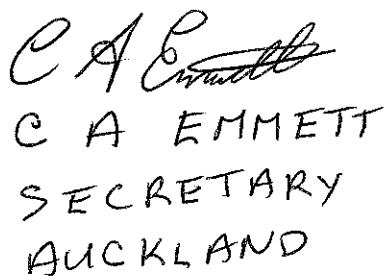 C A Emmett
C A EMMETT
SECRETARY
AUCKLAND